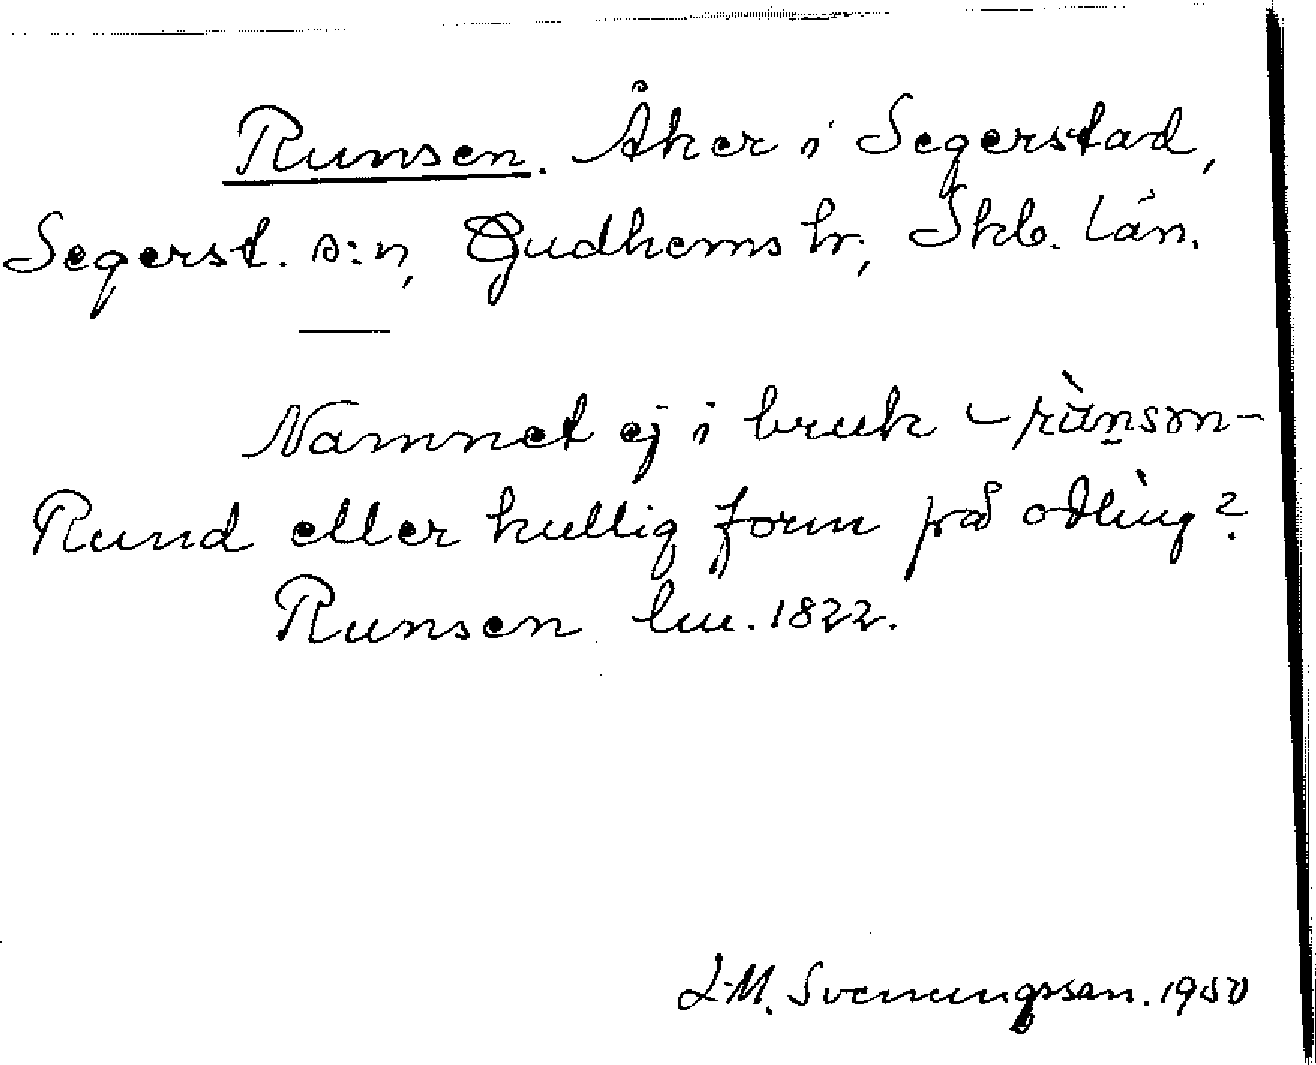 Runsen. Åker i Segerstad,
Segerst. s:n, Gudhems hr, Skb. län.
Namnet ej i bruk – rùnsən –
Rund eller kullig form på odling?
Runsen lm. 1822.
L-M. Svenungsson. 1950